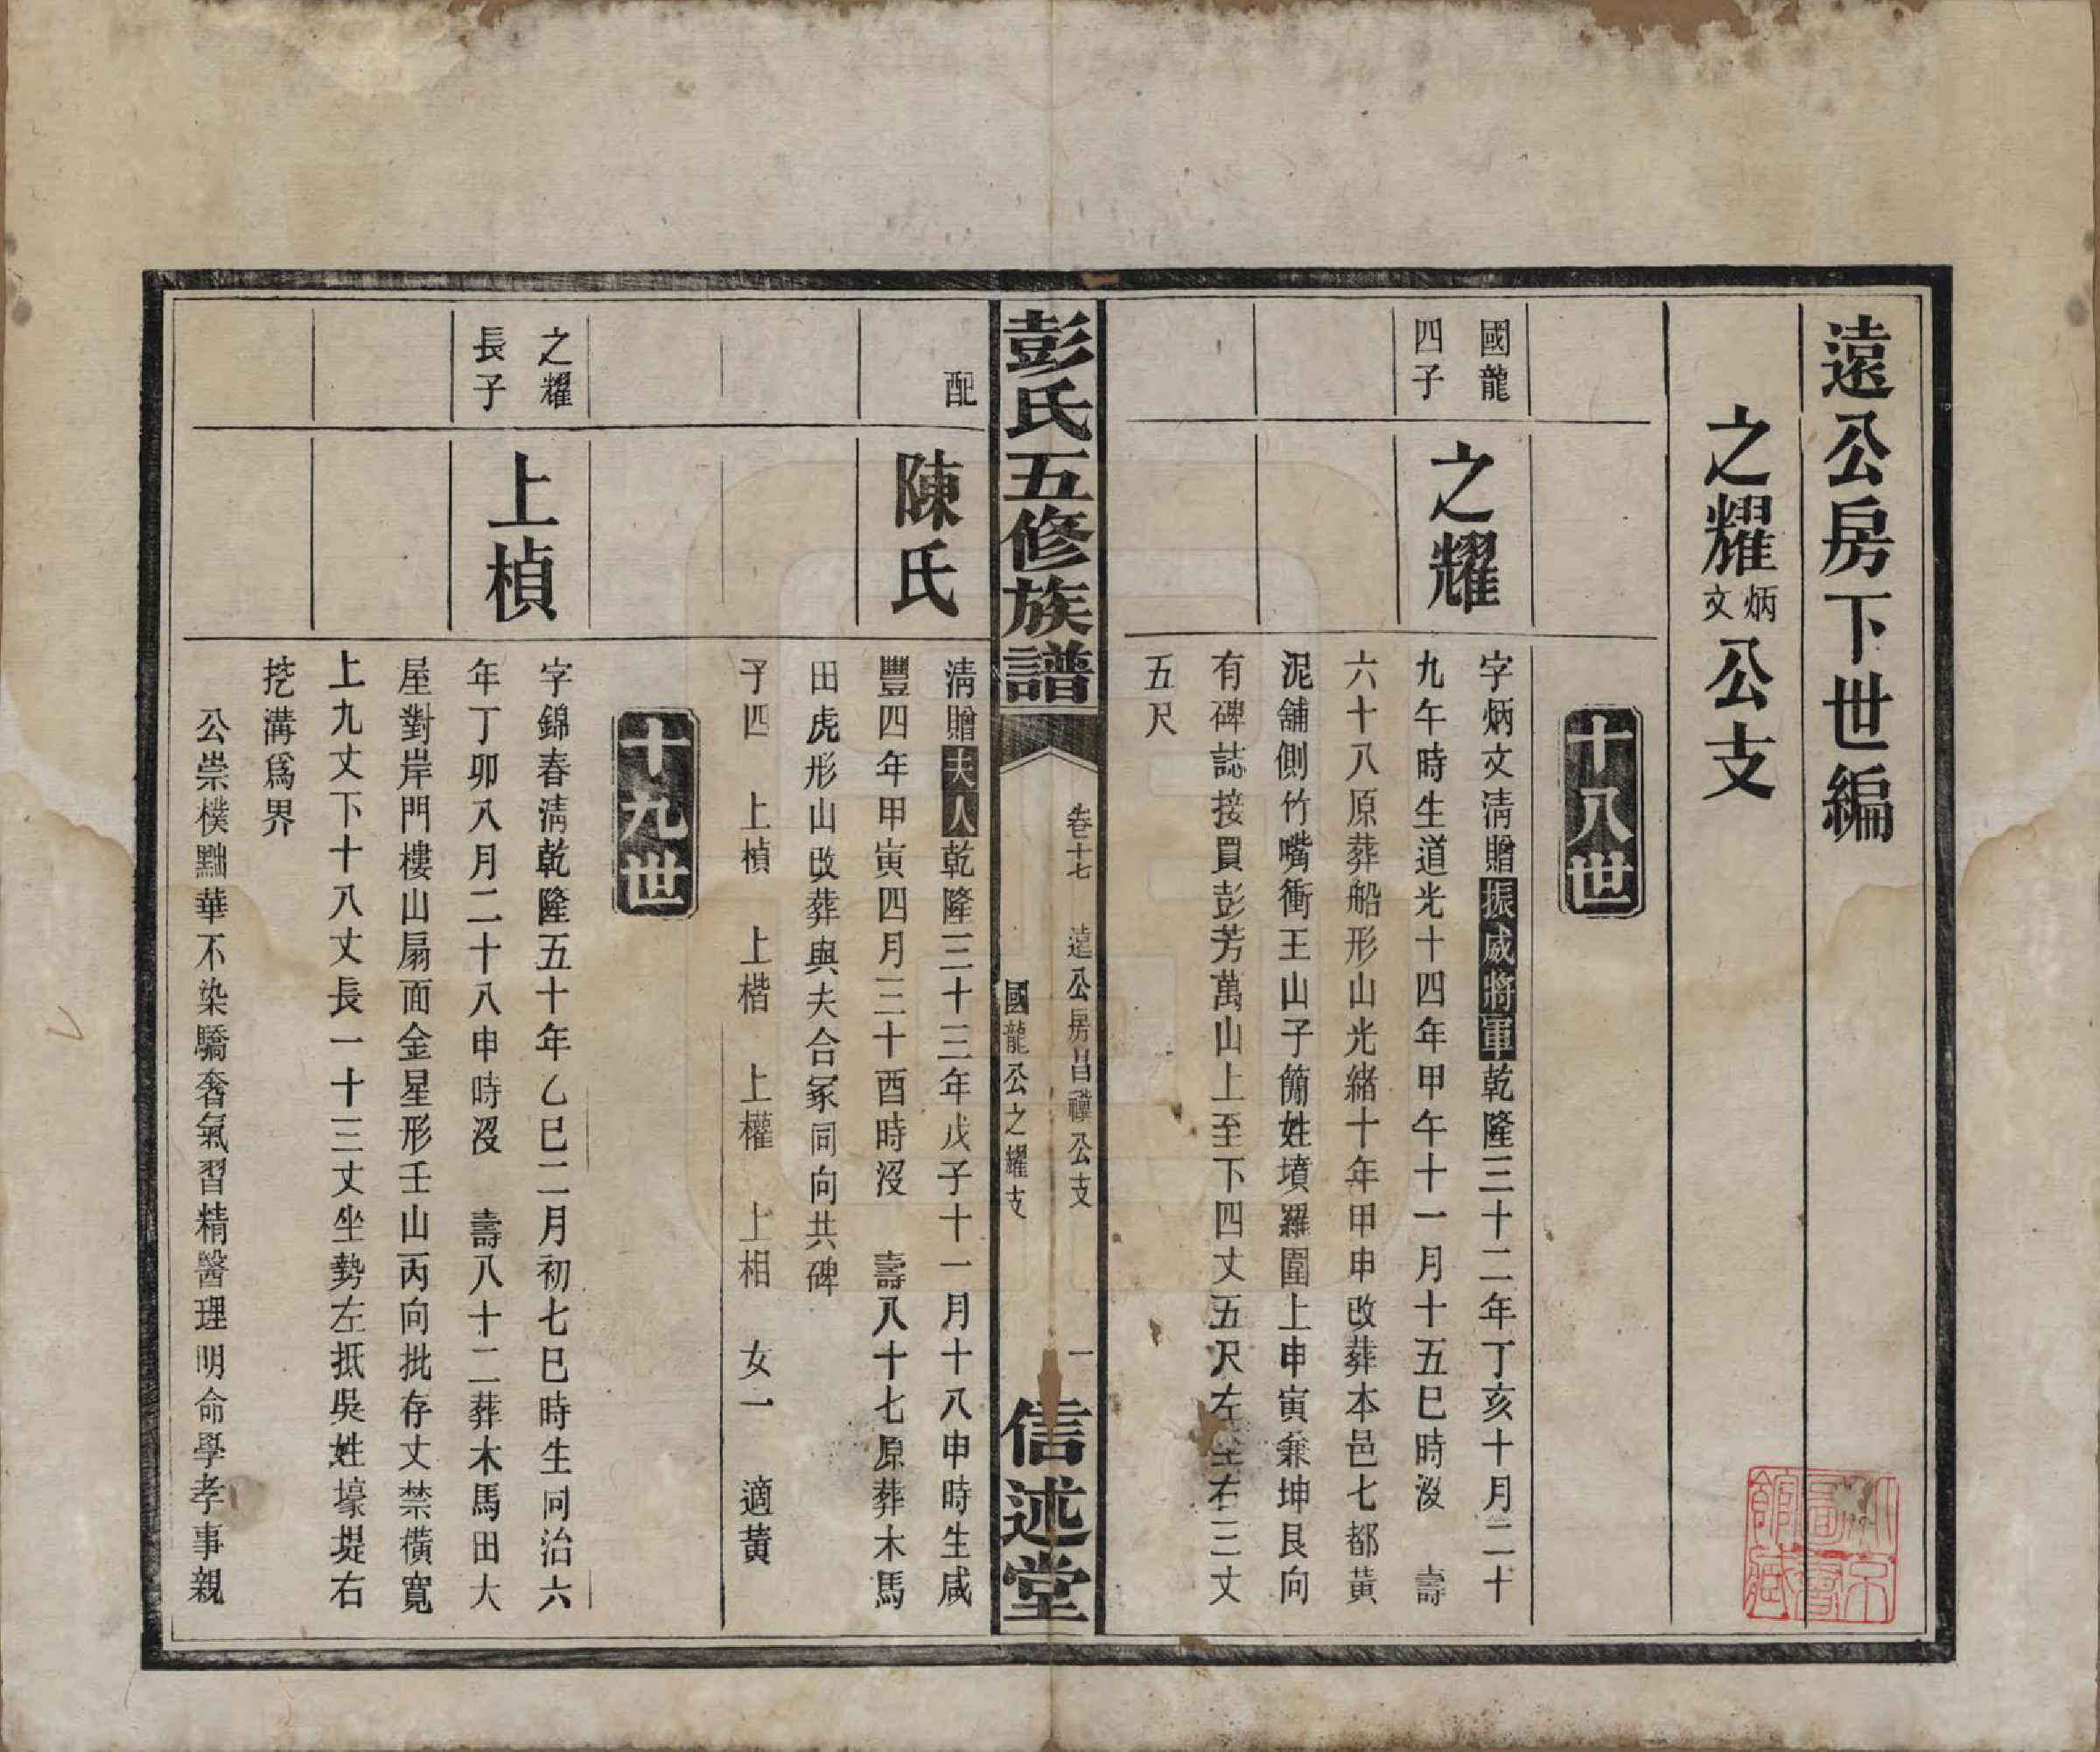 遠公房下世編
之耀炳文公支
十八世
國龍
四子
之耀
字炳文淸贈振威將軍乾隆三十二年丁亥十月二十
九午時生道光十四年甲午十一月十五巳時沒　壽
六十八原葬船形山光緒十年甲申改葬本邑七都黃
泥舖側竹嘴衝王山子簡姓墳羅圍上申寅兼坤艮向
有碑誌接買彭芳萬山上至下四丈五尺左至右三丈
五尺
彭氏五修族譜
卷十七　遠公房昌禩公支　一
國龍公之耀支
信述堂
配
陳氏
淸贈夫人乾隆三十三年戊子十一月十八申時生咸
豐四年甲寅四月三十酉時沒　壽八十七原葬木馬
田虎形山改葬與夫合冢同向共碑
子四　上楨　上楷　上權　上相　女一　適黃
十九世
之耀
長子
上楨
字錦春淸乾隆五十年乙巳二月初七巳時生同治六
年丁卯八月二十八申時沒　壽八十二葬木馬田大
屋對岸門樓山扇面金星形壬山丙向批存丈禁橫寬
上九丈下十八丈長一十三丈坐勢左抵吳姓壕堤右
挖溝爲界
公崇樸黜華不染驕奢氣習精醫理明命學孝事親
北京圖書館藏